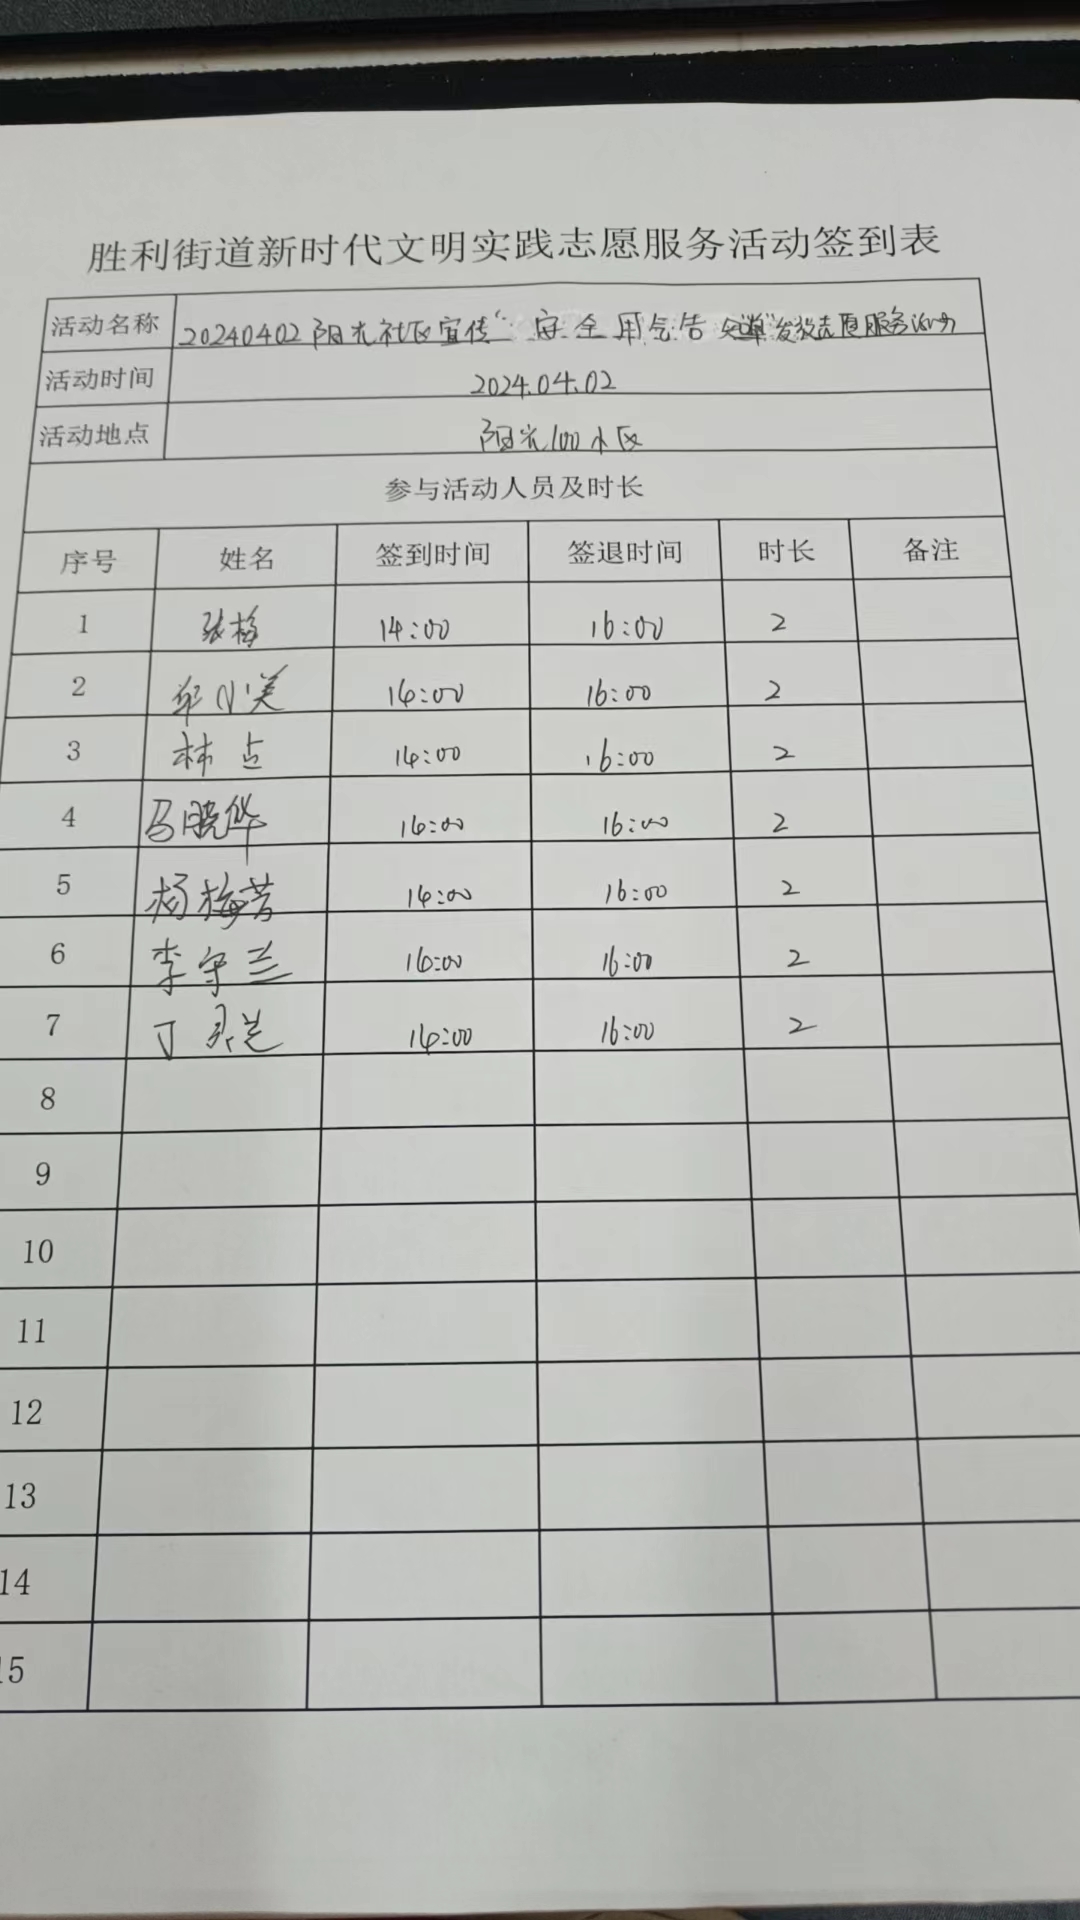 胜利街道新时代文明实践志愿服务活动签到表
活动名称 20240402阳光社区宣传“安全用气告知单”发放志愿服务活动
活动时间 2024.04.02
活动地点 阳光100小区
参与活动人员及时长
序号 姓名 签到时间 签退时间 时长 备注
1 张梅 14:00 16:00 2
2 牟小美 14:00 16:00 2
3 林占 14:00 16:00 2
4 马晓华 14:00 16:00 2
5 杨梅芳 14:00 16:00 2
6 李守兰 14:00 16:00 2
7 丁 14:00 16:00 2
8
9
10
11
12
13
14
15